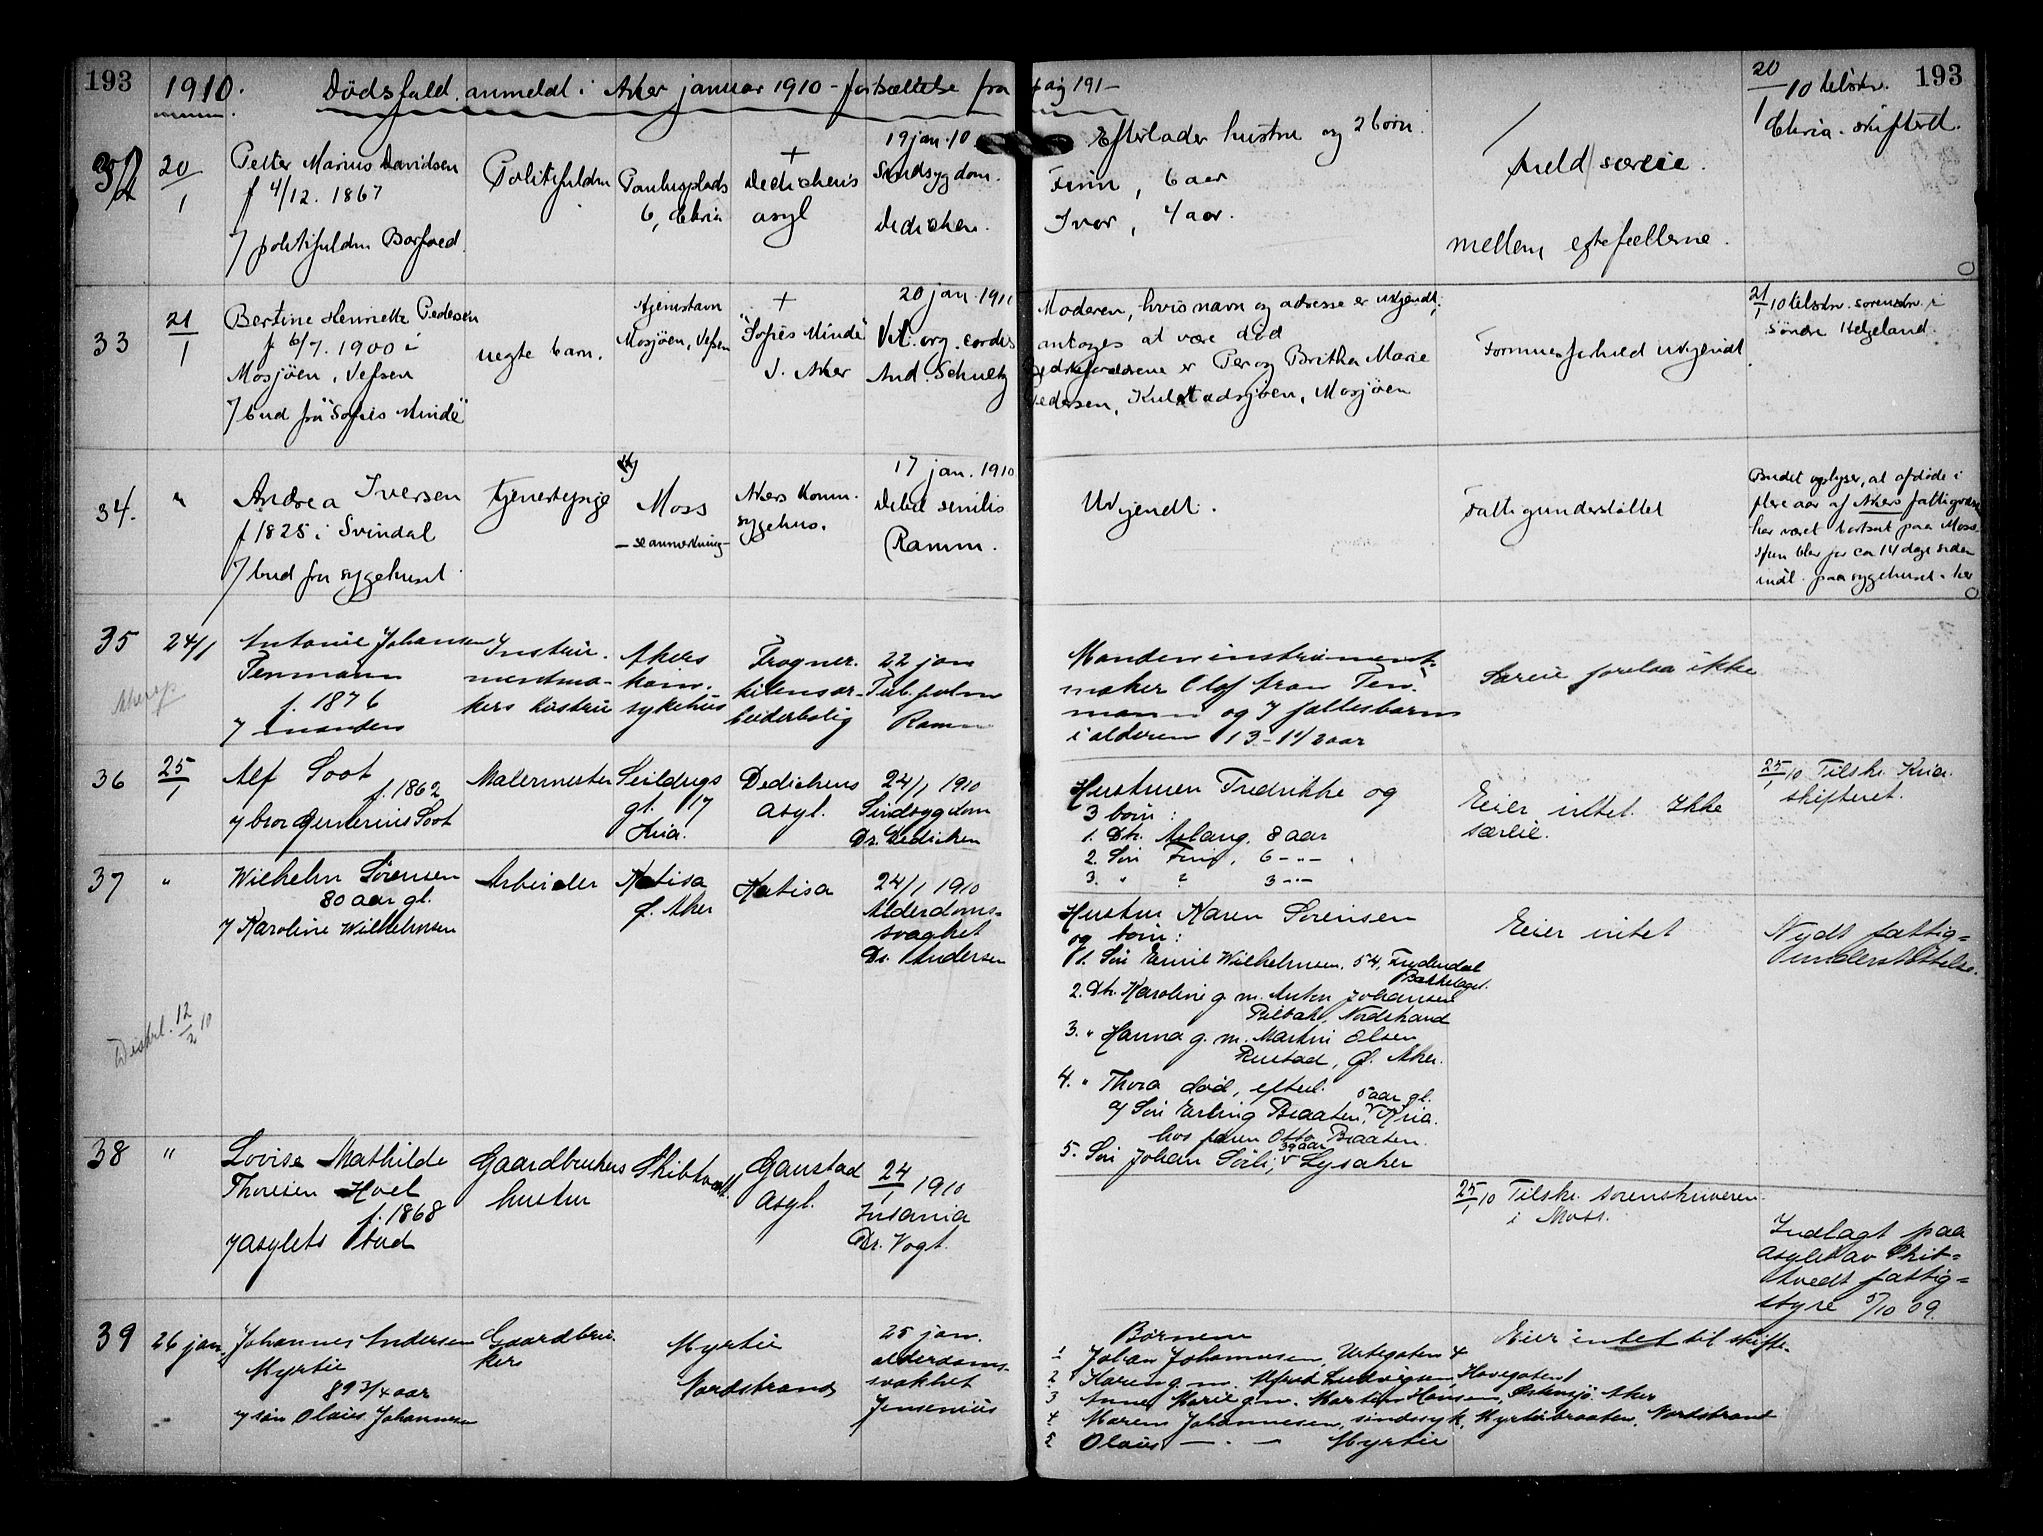 193
1910.
Dødsfald anmeldt i Aker januar 1910 - fortsættelse fra pag 191 -
193
32
20/1
Petter Marius Davidsen
f 4/12. 1867
/ politifuldm Borfoed.
Politifuldm
Paulusplads
6, Chria
+
Dedichens
asyl
19 jan. 10
Sindsygdom.
Dedichen.
Efterlader hustru og 2 børn.
Finn, 6 aar
Ivar, 4 aar.
særeie.
mellem efterfællerne.
20/1 10 tilskr.
Chria. skifterett.
33
21/1
Bertine Henriette Pedersen
f 6/7. 1900 i
Mosjöen, Vefsen
/ bud fra "Sofies Minde"
uegte barn.
Hjemstavn
Mosjöen, Vefsen
+
"Sofies Minde"
i Aker
20 jan. 1910
Vit. org. cordis
And. Schultz
Moderen, hvis navn og adresse er ukjendt,
antages at være död
Bedsteforældrene er Per og Britha Marie
Pedersen, Kulstadsjöen, Mosjöen
Formuesforhold ukjendt.
21/1 10 tilskr. sorenskr. i
Söndre Helgeland.
34.
"
Andrea Iversen
f 1825 i Svindal
/ bud fra sygehuset
tjenestepige
Moss
- se anmerkning -
Akers Komm.
sygehus.
17 jan. 1910
Debil. senilis
Ramm.
Ukjendt.
Fattigunderstöttet
Budet oplyser, at afdöde i
flere aar af Akers fattigvæsen
har været bortsat paa Moss.
Hun blev for ca 14 dage siden
indl. paa sygehuset her
35
24/1
Antonie Johansen
Tenmann
f. 1876
/ manden
Instru-
mentma-
kers hustru
Akers
kom.
sykehus
Frogner-
kilens ar-
beiderbolig
22 jan
Tub. pulm
Ramm
Manden instrument-
maker Olaf Fran Ten-
mann og 7 fællesbarn
i alderen 13 - 1 1/2 aar
Særeie forelaa ikke
36
25/1
Alf Soot
f. 1862
/ bror Gunerius Soot
Malermester
Seildugs
gt. 17
Kria.
Dedichens
asyl.
24/1 1910
Sindsygdom
Dr. Dedichen
Hustruen Fredrikke og
3 børn:
1. Dtr. Aslaug, 8 aar
2. Søn Finn, 6 - " -
3. " ? 3 - " -
Eier intet. Ikke
særeie.
25/1 10 Tilskr. Kria.
skifteret.
37
"
Wilhelm Sørensen
80 aar gl.
/ Karoline Wilhelmsen
Arbeider
Katisa
Ø. Aker
Katisa
24/1 1910
Alderdoms-
svaghet
Dr. Andersen
Hustru Karen Sørensen
og børn:
1. Søn Emil Wilhelmsen, 54, Frydendal
Bækkelaget.
2. Dtr. Karoline g. m. Anton Johansen
Nordstrand
3. " Hanna g. m. Martin Olsen
Rustad, Ø. Aker.
4. " Thora död, efterl.
5 aar gl.
a/ Søn Erling Braaten, Kria.
hos faren Otto Braaten.
39 aar
5. Søn Johan Sørli, Lysaker
Eier intet
Nydt fattig-
understøttelse.
12/2 10
38
"
Lovise Mathilde
Thoresen Hoel
f. 1868
/ asylets bud
Gaardbrukers
hustru
Skibtvedt
Gaustad
asyl.
24/1 1910
Insania
Dr. Vogt.
25/1 10 Tilskr. sorenskriveren
i Moss.
Indlagt paa
asylet av Skibt-
vedt fattig-
styre 5/10 09.
39
26 jan.
Johannes Andersen
Myrtie
89 3/4 aar
/ søn Olaus Johannesen
Gaardbru-
ker
Myrtie
Nordstrand
25 jan.
alderdoms-
svakhet
Jensenius
Børnene
1 Johan Johannesen, Urtegaten 4
2 Karen g. m. Alfred Ludvigsen, Havegaten 1
3 Anne Marie g. m. Martin Hansen, Østensjø, Aker
4 Maren Johannesen, sindssyk, Myrtiebraaten, Nordstrand
5 Olaus - " - Myrtie
Eier intet til skifte.